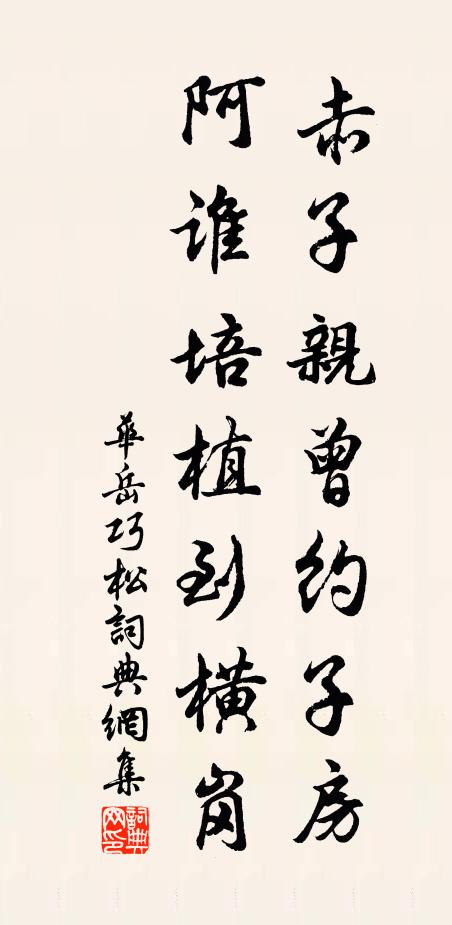 赤子親曾約子房
阿誰培植到橫崗
華岳巧松詞典網集
詞典網印